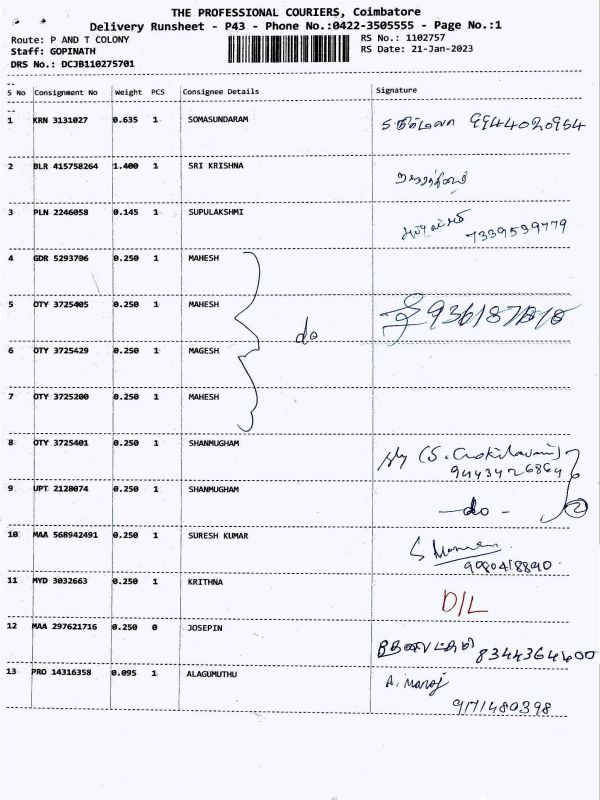 THE PROFESSIONAL COURIERS, Coimbatore
Delivery Runsheet - P43 - Phone No.:0422-3505555 - Page No.:1
Route: P AND T COLONY
RS No.: 1102757
Staff: GOPINATH
RS Date: 21-Jan-2023
DRS No.: DCJB110275701
S No Consignment No Weight PCS Consignee Details Signature
1 KRN 3131027 0.635 1 SOMASUNDARAM 9944020964
2 BLR 415758264 1.400 1 SRI KRISHNA
3 PLN 2246058 0.145 1 SUPULAKSHMI
7339539779
4 GDR 5293706 0.250 1 MAHESH
5 OTY 3725405 0.250 1 MAHESH
do
6 OTY 3725429 0.250 1 MAGESH
7 OTY 3725200 0.250 1 MAHESH
8 OTY 3725401 0.250 1 SHANMUGHAM
9443426864
9 UPT 2128074 0.250 1 SHANMUGHAM
-do- 2
10 MAA 568942491 0.250 1 SURESH KUMAR
11 MYD 3032663 0.250 1 KRITHNA
D/L
12 MAA 297621716 0.250 0 JOSEPIN
8344364400
13 PRO 14316358 0.095 1 ALAGUMUTHU A. Manoj
9171480398